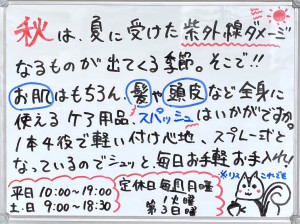 秋は、夏に受けた紫外線ダメージ
なるものが出てくる季節。そこで!!
お肌はもちろん、髪や頭皮など全身に
使えるケア用品、スパッシュはいかがですか。
1本4役で軽い付け心地、スプレー式と
なっているのでシュッと、毎日お手軽お手入れ!
※リス これでも
平日 10:00〜19:00
土・日 9:00〜18:30
定休日 毎週月曜
1火曜
第3日曜